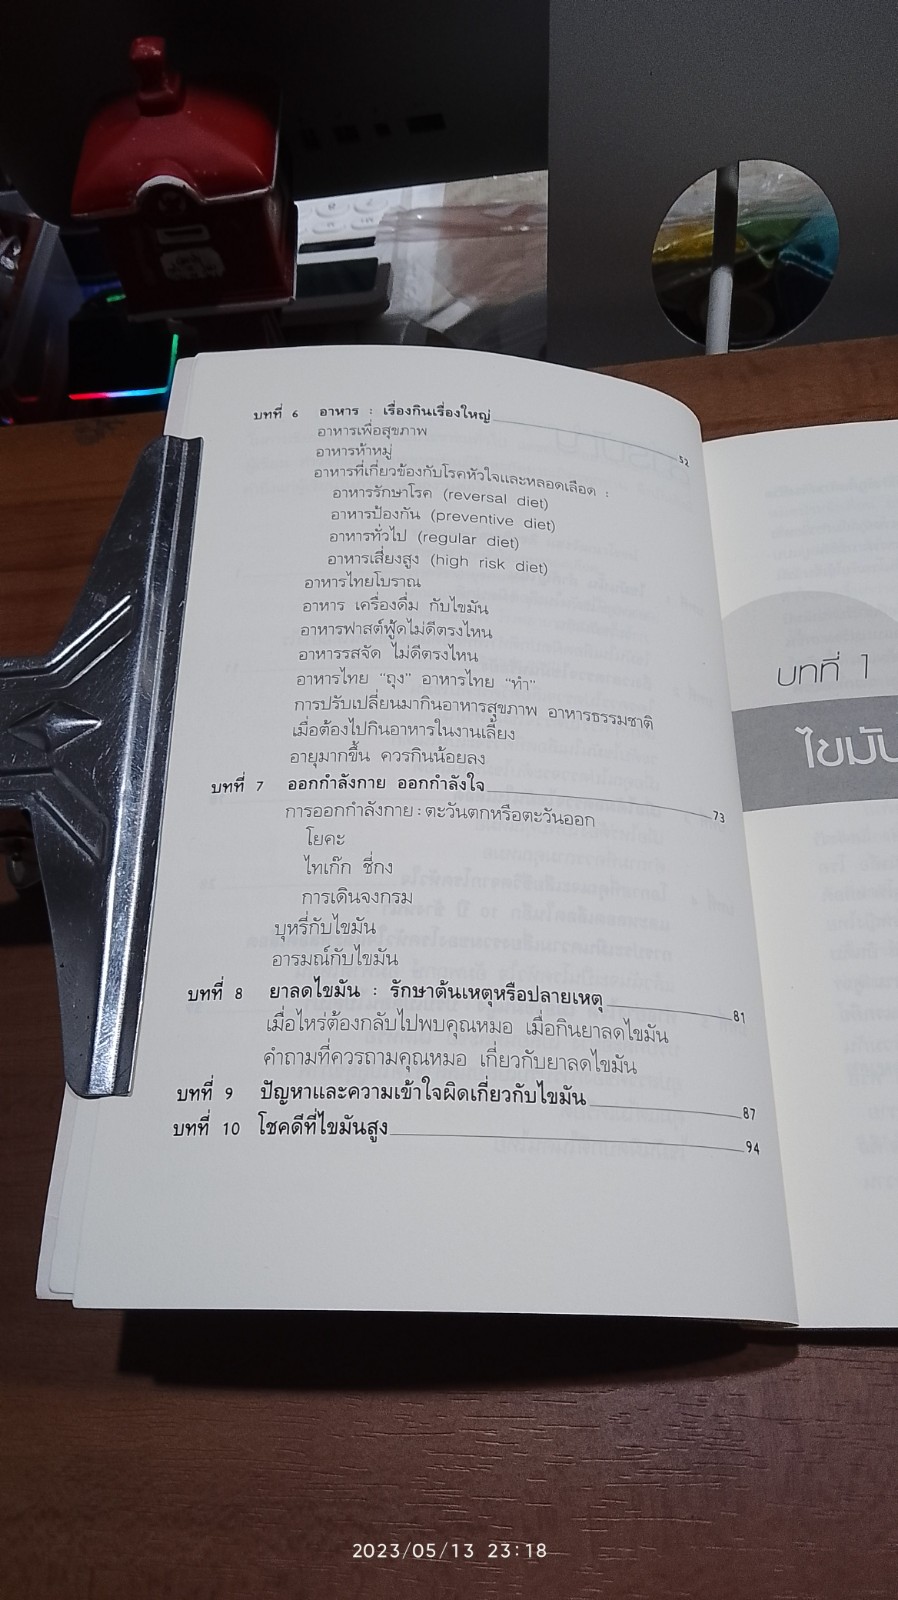 บทที่ 6 อาหาร : เรื่องกินเรื่องใหญ่ 52
อาหารเพื่อสุขภาพ
อาหารห้าหมู่
อาหารที่เกี่ยวข้องกับโรคหัวใจและหลอดเลือด :
อาหารรักษาโรค (reversal diet)
อาหารป้องกัน (preventive diet)
อาหารทั่วไป (regular diet)
อาหารเสี่ยงสูง (high risk diet)
อาหารไทยโบราณ
อาหาร เครื่องดื่ม กับไขมัน
อาหารฟาสต์ฟู้ดไม่ดีตรงไหน
อาหารรสจัด ไม่ดีตรงไหน
อาหารไทย “ถุง” อาหารไทย “ทำ”
การปรับเปลี่ยนมากินอาหารสุขภาพ อาหารธรรมชาติ
เมื่อต้องไปกินอาหารในงานเลี้ยง
อายุมากขึ้น ควรกินน้อยลง
บทที่ 7 ออกกำลังกาย ออกกำลังใจ 73
การออกกำลังกาย : ตะวันตกหรือตะวันออก
โยคะ
ไทเก๊ก ชี่กง
การเดินจงกรม
บุหรี่กับไขมัน
อารมณ์กับไขมัน
บทที่ 8 ยาลดไขมัน : รักษาต้นเหตุหรือปลายเหตุ 81
เมื่อไหร่ต้องกลับไปพบคุณหมอ เมื่อกินยาลดไขมัน
คำถามที่ควรถามคุณหมอ เกี่ยวกับยาลดไขมัน
บทที่ 9 ปัญหาและความเข้าใจผิดเกี่ยวกับไขมัน 87
บทที่ 10 โชคดีที่ไขมันสูง 94
บทที่ 1
ไขมัน
2023/05/13 23:18